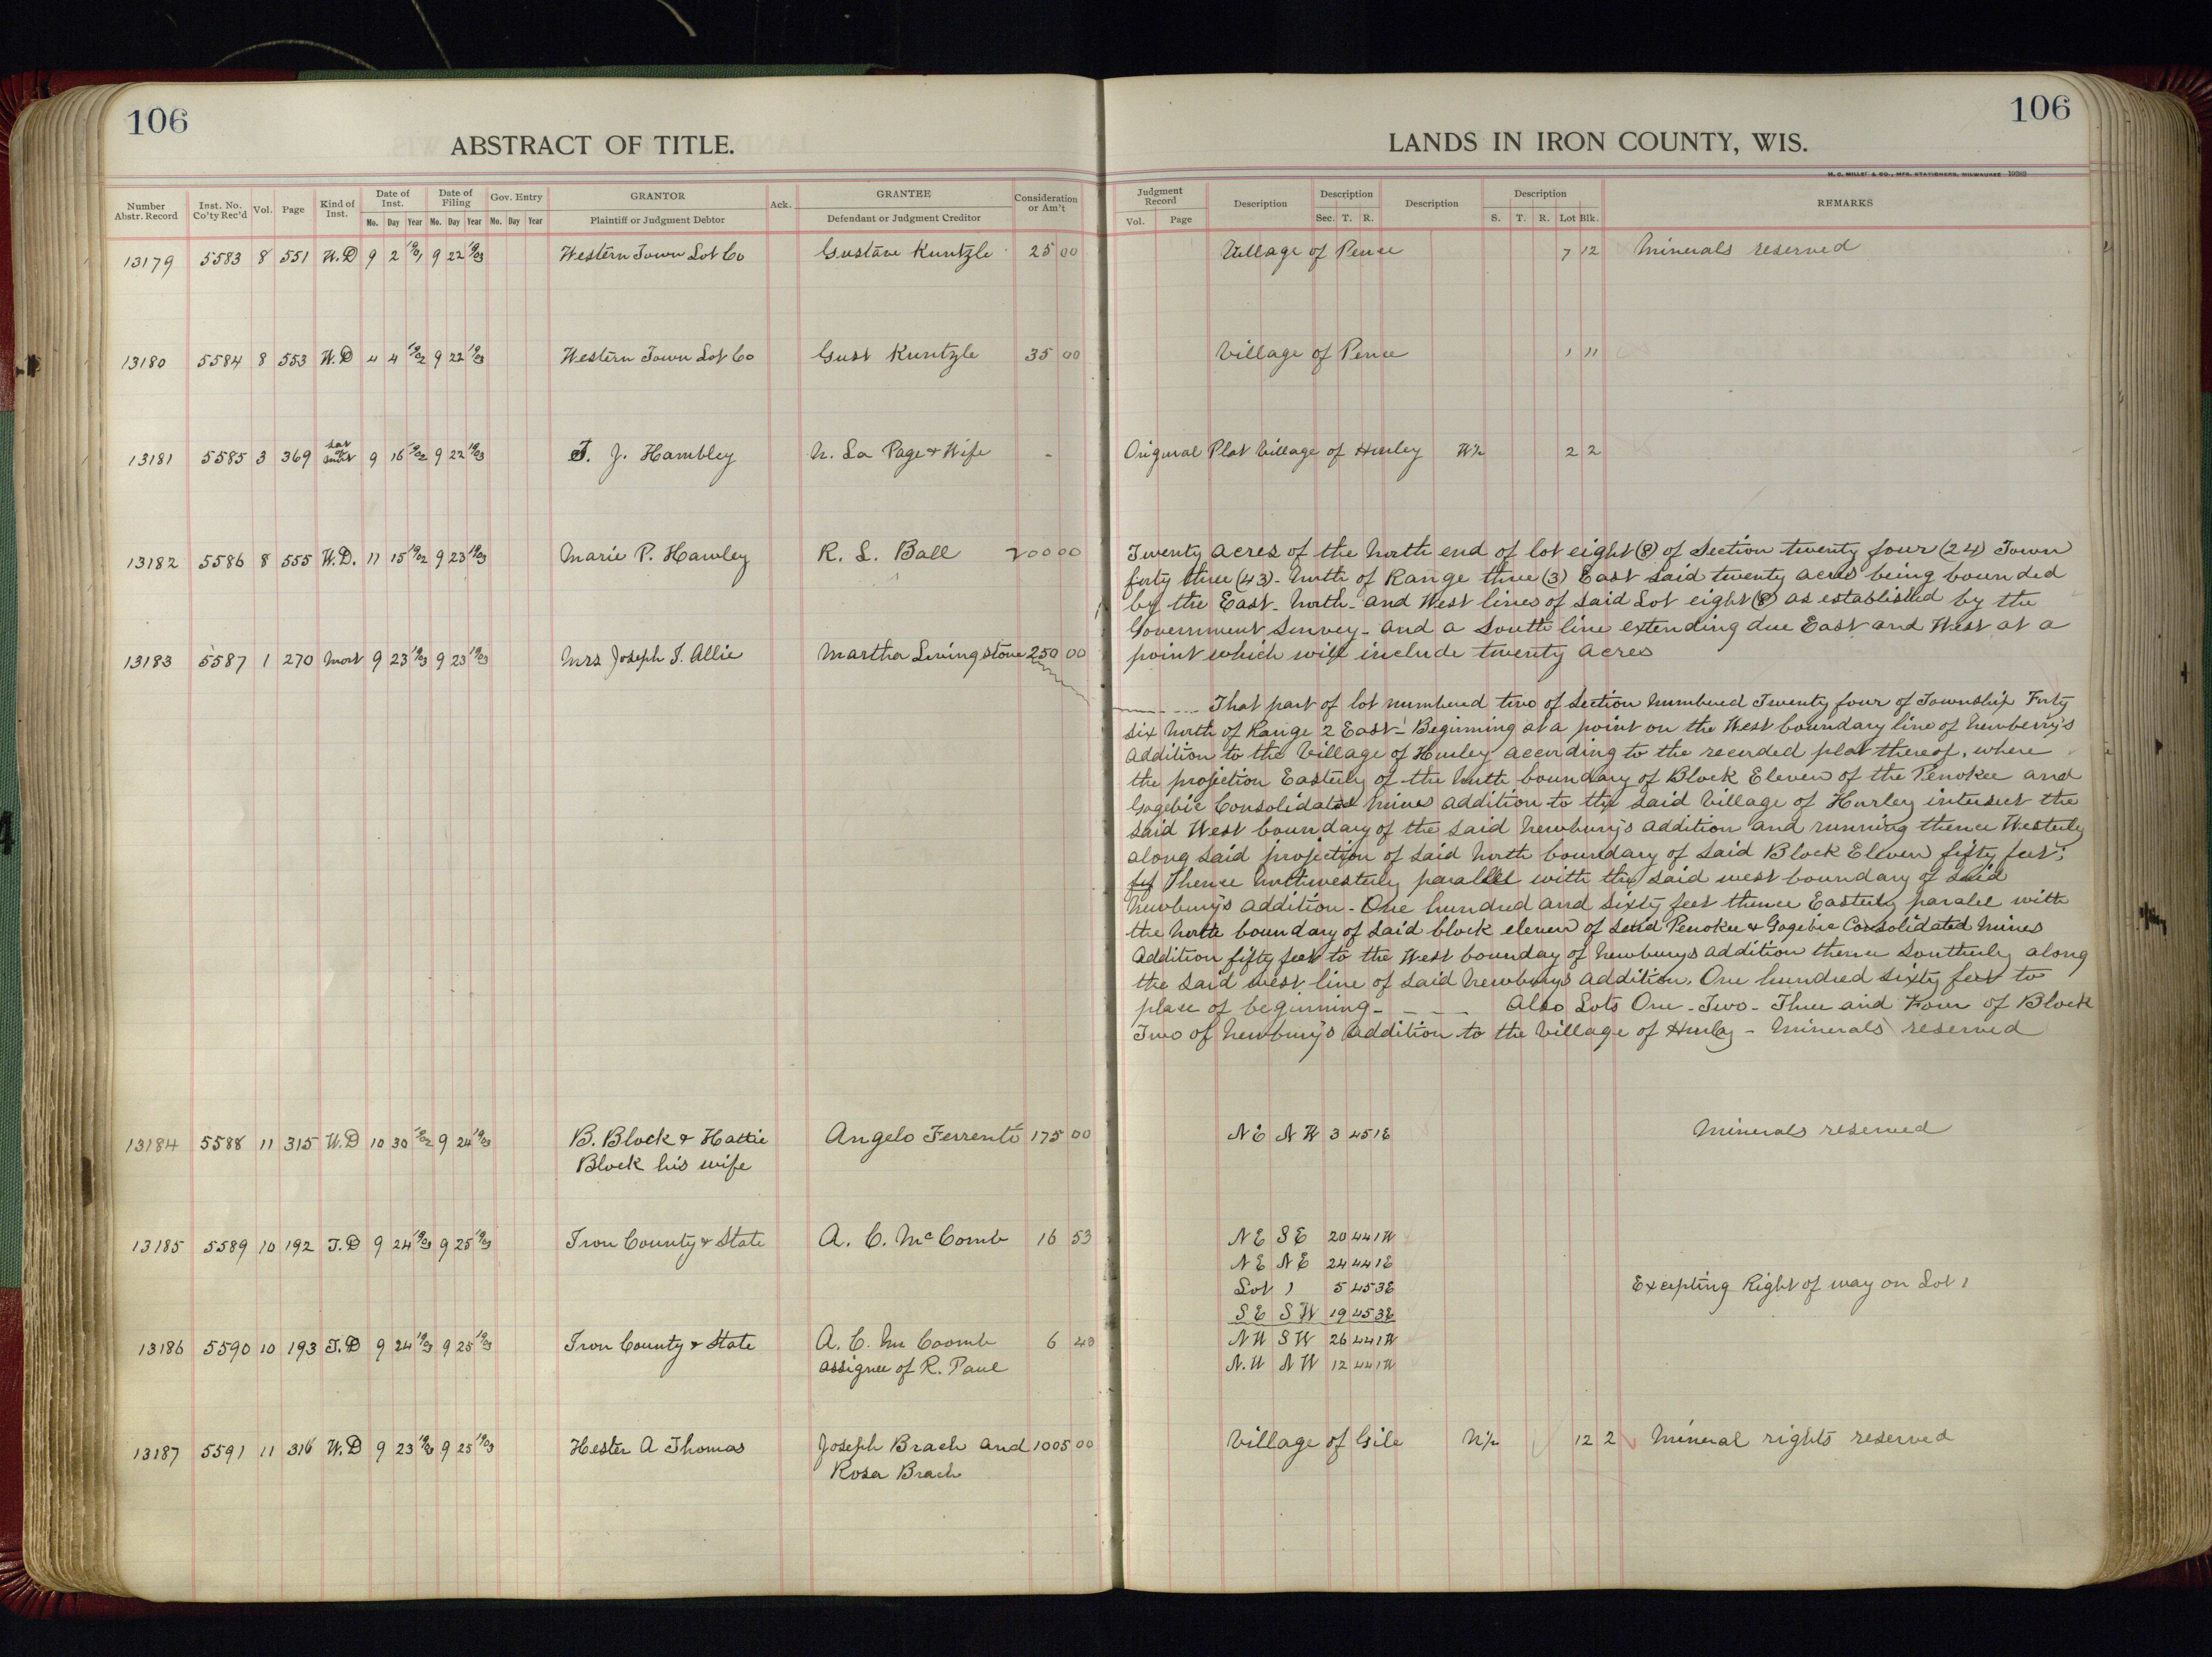 106
ABSTRACT OF TITLE.
Number Abstr. Record
Inst. No. Co'ty Rec'd
Vol.
Page
Kind of Inst.
Date of Inst.
Date of Filing
Gov. Entry
GRANTOR
Ack.
GRANTEE
Consideration or Am't
No. Day Year No. Day Year No. Day Year
Plaintiff or Judgment Debtor
Defendant or Judgment Creditor
13179 5583 8 551 W.D 9 2 1901 9 22 1903 Western Town Lot Co Gustave Kuntzle 25 00
13180 5584 8 553 W.D 4 4 1902 9 22 1903 Western Town Lot Co Gust Kuntzle 35 00
13181 5585 3 369 Sat of 9 16 1902 9 22 1903 T. J. Hambley N. La Page & Wife -
13182 5586 8 555 W.D. 11 15 1902 9 23 1903 Marie P. Hawley R. L. Ball 200 00
13183 5587 1 270 Mort 9 23 1903 9 23 1903 Mrs Joseph T. Allie Martha Livingstone 250 00
13184 5588 11 315 W.D 10 30 1902 9 24 1903 B. Block & Hattie Angelo Ferrenti 175 00
Block his wife
13185 5589 10 192 T.D 9 24 1903 9 25 1903 Iron County & State A. C. McComb 16 53
13186 5590 10 193 T.D 9 24 1903 9 25 1903 Iron County & State A. C. Mc Coomb 6 40
assignee of R. Paul
13187 5591 11 316 W.D 9 23 1903 9 25 1903 Hester A Thomas Joseph Brach and 1005 00
Rosa Brach
106
LANDS IN IRON COUNTY, WIS.
H. C. MILLER & CO., MFG. STATIONERS, MILWAUKEE 19282
Judgment Record
Description
Description
Description
Description
REMARKS
Vol. Page
Sec. T. R.
S. T. R. Lot Blk.
Village of Pence 7 12 Minerals reserved
Village of Pence 1 11
Original Plat Village of Hurley W½ 2 2
Twenty acres of the North end of lot eight (8) of Section twenty four (24) Town
forty three (43) - North of Range three (3) East said twenty acres being bounded
by the East - North - and West lines of said Lot eight (8) as established by the
Government Survey - and a South line extending due East and West at a
point which will include twenty acres
That part of lot numbered two of Section numbered Twenty four of Township Forty
six North of Range 2 East - Beginning at a point on the West boundary line of Newberry's
addition to the Village of Hurley according to the recorded plat thereof, where
the projection Easterly of the North boundary of Block Eleven of the Penokee and
Gogebic Consolidated Mines addition to the said Village of Hurley intersect the
said West boundary of the said Newbury's addition and running thence Westerly
along said projection of said North boundary of said Block Eleven fifty feet;
Thence Northwesterly parallel with the said west boundary of said
Newbury's addition - One hundred and sixty feet thence Easterly paralel with
the North boundary of said block eleven of said Penokee & Gogebic Consolidated Mines
Addition fifty feet to the West bounday of Newburys addition thence Southerly along
the said west line of said Newburys addition. One hundred sixty feet to
place of beginning - - - - Also Lots One - Two - Three and Four of Block
Two of Newbury's addition to the Village of Hurley - Minerals reserved
NE NW 3 45 1E Minerals reserved
NE SE 20 44 1W
NE NE 24 44 1E
Lot 1 5 45 3E Excepting Right of way on Lot 1
SE SW 19 45 3E
NW SW 26 44 1W
N.W NW 12 44 1W
Village of Gile N½ 12 2 Mineral rights reserved